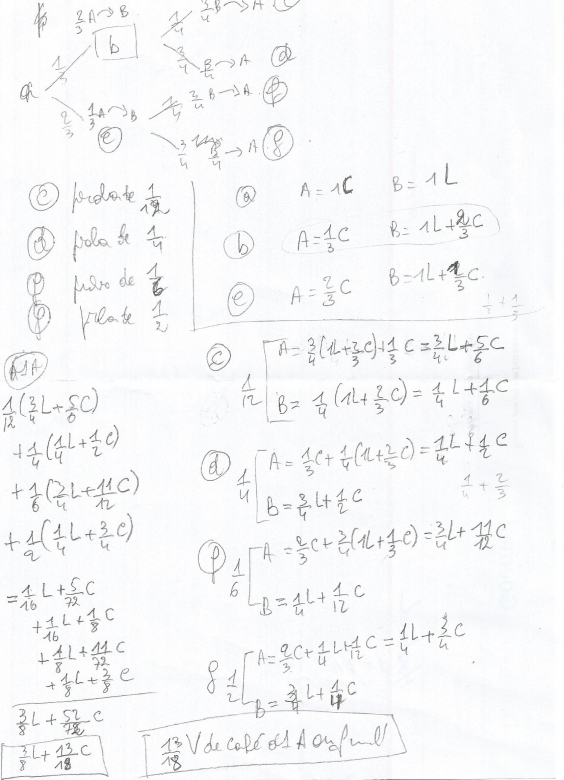 2/3 A → B
1/4
3/4 B → A
b
1/3
3/4
A
d
a
1/4
3/4 B → A
f
2/3
1/3 A → B
e
3/4
→ A
g
c
de 1/12
d
de 1/4
f
de 1/6
g
de 1/2
a
A = 1C
B = 1L
b
A = 1/3 C
B = 1L + 2/3 C
e
A = 2/3 C
B = 1L + 1/3 C.
c
1/12
A = 3/4 (1L + 2/3 C) + 1/3 C = 3/4 L + 5/6 C
B = 1/4 (1L + 2/3 C) = 1/4 L + 1/6 C
d
1/4
A = 1/3 C + 1/4 (1L + 2/3 C) = 1/4 L + 1/2 C
B = 3/4 L + 1/2 C
1/4 + 2/3
f
1/6
A = 2/3 C + 3/4 (1L + 1/3 C) = 3/4 L + 11/12 C
B = 1/4 L + 1/12 C
g
1/2
A = 2/3 C + 1/4 L + 1/12 C = 1/4 L + 3/4 C
B = 3/4 L + 1/4 C
1/12 (3/4 L + 5/6 C)
+ 1/4 (1/4 L + 1/2 C)
+ 1/6 (3/4 L + 11/12 C)
+ 1/2 (1/4 L + 3/4 C)
= 1/16 L + 5/72 C
+ 1/16 L + 1/8 C
+ 1/8 L + 11/72 C
+ 1/8 L + 3/8 C
3/8 L + 52/72 C
3/8 L + 13/18 C
13/18 V de café